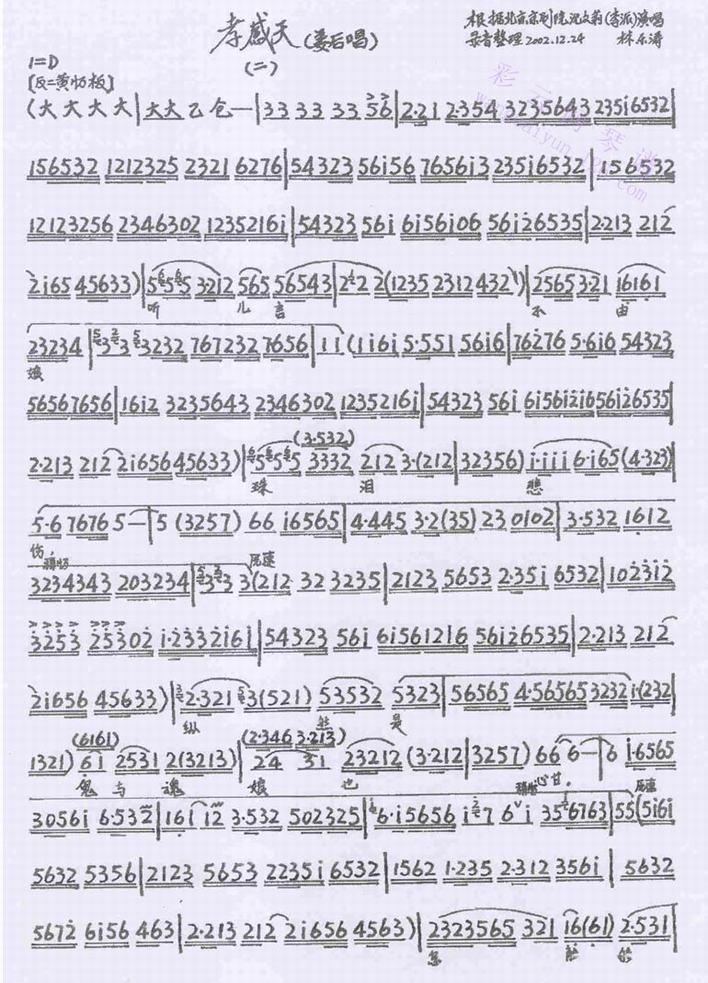 孝感天(姜后唱)
(二)
根据北京京剧院沈文莉(李派)演唱
录音整理 2002.12.24 林乐涛
1=D
[反二黄切板]
(大 大 大 大 | 大大 乙 仓 — | 33 33 33 56 | 2·21 2·354 3235643 235i6532 |
156532 1212325 2321 6276 | 54323 56i56 7656i3 235i6532 | 156532
12123256 2346302 1235216i | 54323 56i 6i56i06 56i26535 | 2·213 212
2i65 45633) | 5 5 5 3·212 565 56543 | 2 2 2 (1235 2312 432 1) | 2565 3·21 16161
听 儿 言 不 由
23234 | 3 3 3232 767232 7656 | 1 i (1i6i 5·551 5616 | 76276 5·6i6 54323
娘
56567656 | 16i2 3235643 2346302 1235216i | 54323 56i 6i56i2i6 56i26535 |
2·213 212 2i656 45633) | 5 5 5 3332 212 3·(212 | 32356) i·iii 6·i65 (4·323)
(3·532)
珠 泪 悲
5·6 76765 — | 5 (3257) 66 i6565 | 4·445 3·2(35) 23 0102 | 3·532 1612
伤,
3234343 203234 | 3 3 3(212 32 3235 | 2123 5653 2·35i 6532 | 102312
原速
3253 25302 i·233216i | 54323 56i 6i561216 56i26535 | 2·213 212
2i656 45633) | 2·321 3(521) 53532 5323 | 56565 4·56565 3232 i·(232
纵 然 是
1321) 6i 2531 2(3213) | 24 31 23212 (3·212 | 3257) 66 6 — | 6 i·6565
(6161) (2·346 3·213)
鬼 与 魂 娘 也 心甘,
3056i 6·532 | 16i i2 3·532 502325 | 6·i5656 i 7 6 i 35 6763 | 55 (5i6i
原速
5632 5356 | 2123 5653 2235i 6532 | 1562 1·235 2·312 356i | 5632
5672 6i56 463 | 2·213 212 2i656 4563) | 2323565 321 i6(61) 2·531
怎 能 够